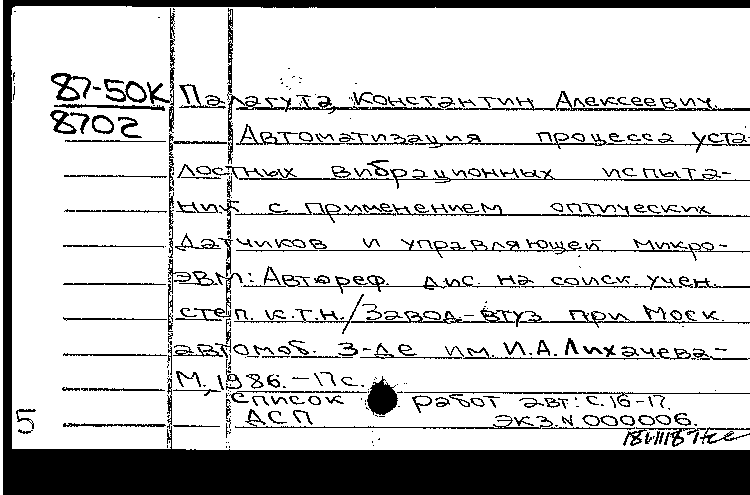 87-50К Палагута, Константин Алексеевич.
8702 Автоматизация процесса уста-
лостных вибрационных испыта-
ний с применением оптических
датчиков и управляющей микро-
ЭВМ: Автореф. дис. на соиск. учен.
степ. к.т.н./Завод-втуз при Моск.
автомоб. з-де им. И.А.Лихачева-
М., 1986.-17с.
Список работ авт: с.16-17.
5 ДСП экз.N 000006.